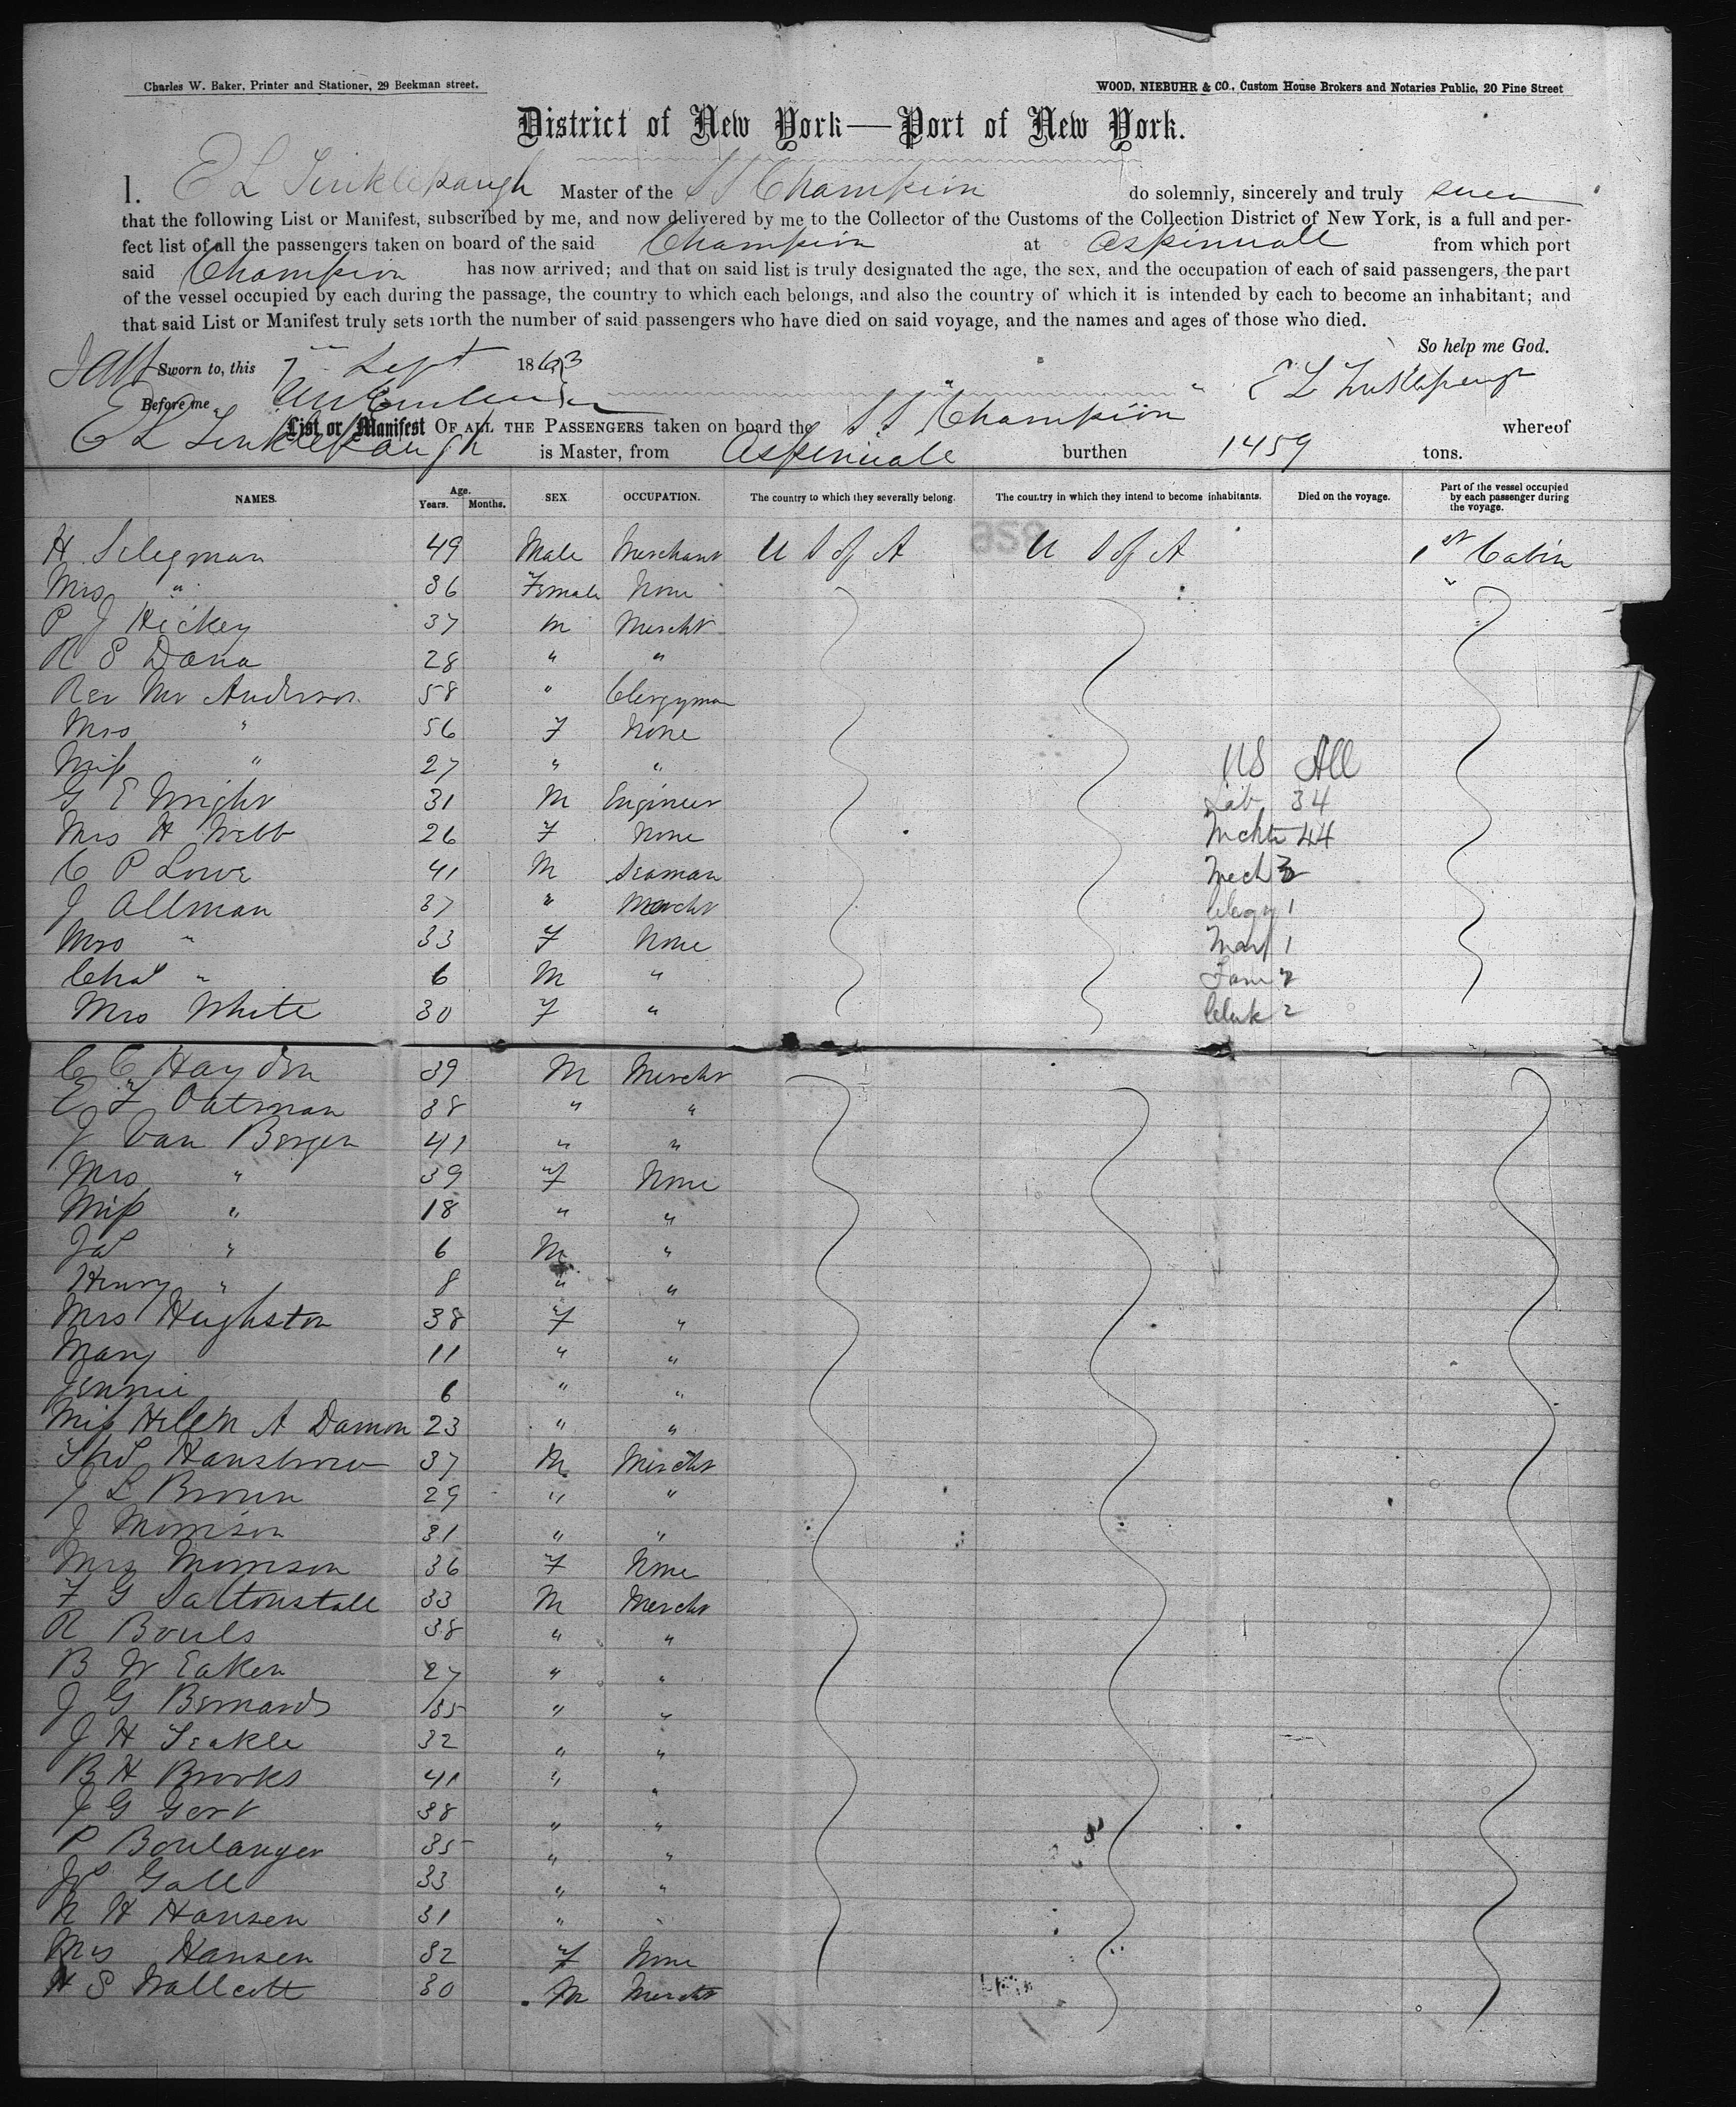 Charles W. Baker, Printer and Stationer, 29 Beekman street.
WOOD, NIEBUHR & CO., Custom House Brokers and Notaries Public, 20 Pine Street
District of New York—Port of New York.
I. E L Tinklepaugh Master of the S S Champion do solemnly, sincerely and truly swear
that the following List or Manifest, subscribed by me, and now delivered by me to the Collector of the Customs of the Collection District of New York, is a full and per-
fect list of all the passengers taken on board of the said Champion at Aspinwall from which port
said Champion has now arrived; and that on said list is truly designated the age, the sex, and the occupation of each of said passengers, the part
of the vessel occupied by each during the passage, the country to which each belongs, and also the country of which it is intended by each to become an inhabitant; and
that said List or Manifest truly sets forth the number of said passengers who have died on said voyage, and the names and ages of those who died.
So help me God.
Sworn to, this 7 Sept 1863
E L Tinklepaugh
Before me
List or Manifest OF ALL THE PASSENGERS taken on board the S S Champion whereof
E L Tinklepaugh is Master, from Aspinwall burthen 1459 tons.
NAMES. Age. Years. Months. SEX. OCCUPATION. The country to which they severally belong. The country in which they intend to become inhabitants. Died on the voyage. Part of the vessel occupied by each passenger during the voyage.
H Selegman 49 Male Merchant U S of A U S of A 1st Cabin
Mrs " 36 Female None "
P J Hickey 37 M Mercht
R S Dana 28 " "
Rev Mr Anderson 58 " Clergyman
Mrs " 56 F None
Miss " 27 " " US All
G E Wright 31 M Engineer Lab 34
Mrs H Webb 26 F None Mchts 44
C P Lowe 41 M Seaman Mech 3
J Allman 37 " Mercht Clegy 1
Mrs " 33 F None Mar 1
Chas " 6 M " Farm 2
Mrs White 30 F " Clerk 2
C C Hayden 39 M Mercht
E F Oatman 38 " "
J Van Bergen 41 " "
Mrs " 39 F None
Miss " 18 " "
Jas " 6 M "
Henry " 8 " "
Mrs Hughston 38 F "
Mary 11 " "
Jennie 6 " "
Miss Helen A Damon 23 " "
Thos Hansbrow 37 M Mercht
J L Brown 29 " "
J Morrison 31 " "
Mrs Morrison 36 F None
F G Saltonstall 33 M Mercht
R Bouls 38 " "
B W Eaken 27 " "
J G Bernards 35 " "
J H Teakle 32 " "
B H Brooks 41 " "
J G 38 " "
P Boulanger 35 " "
Gall 33 " "
N H Hansen 31 " "
Mrs Hansen 32 F None
H S Wallcott 30 M Mercht